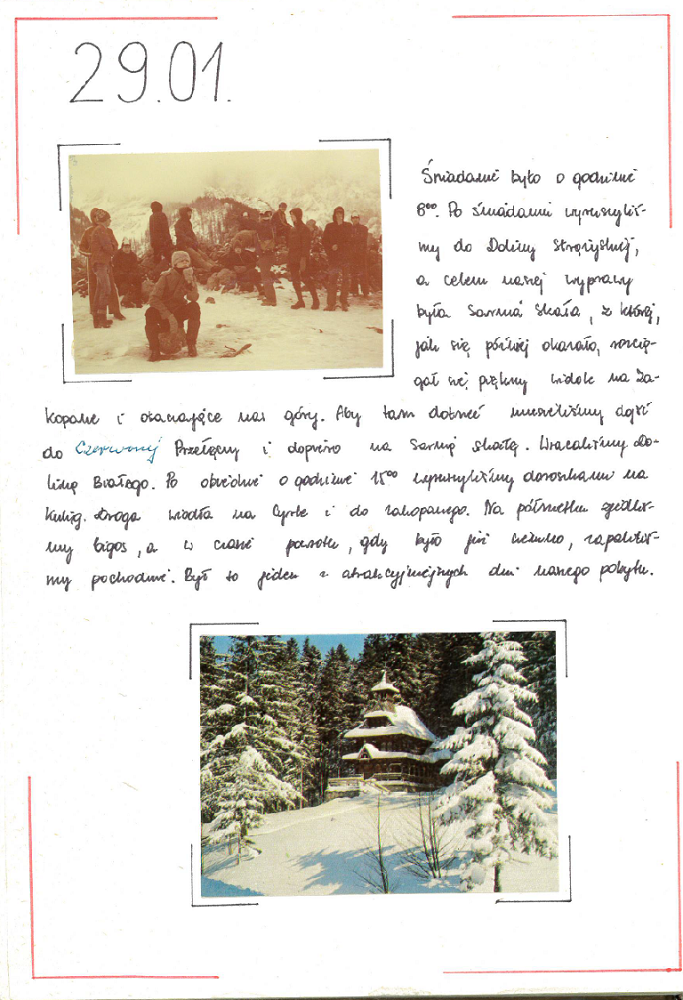 29.01.
Śniadanie było o godzinie
8⁰⁰. Po śniadaniu wyruszyliś-
my do Doliny Strążyskiej,
a celem naszej wyprawy
była Sarnia Skała, z której,
jak się później okazało, rozcią-
gał się piękny widok na Za-
kopane i otaczające nas góry. Aby tam dotrzeć musieliśmy dojść
do Czerwonej Przełęczy i dopiero na Sarnią Skałę. Wracaliśmy Do-
liną Białego. Po obiedzie o godzinie 15⁰⁰ wyruszyliśmy dorożkami na
kulig. Droga wiodła na Cyrle i do Zakopanego. Na półmetku zjedliś-
my bigos, a w czasie powrotu, gdy było już ciemno, zapaliliś-
my pochodnie. Był to jeden z atrakcyjniejszych dni naszego pobytu.